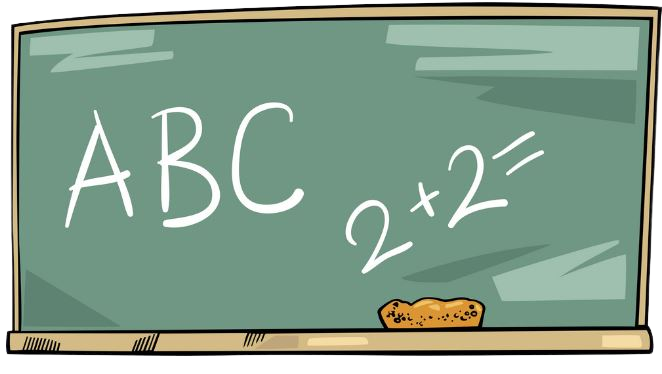 ABC
2+2=